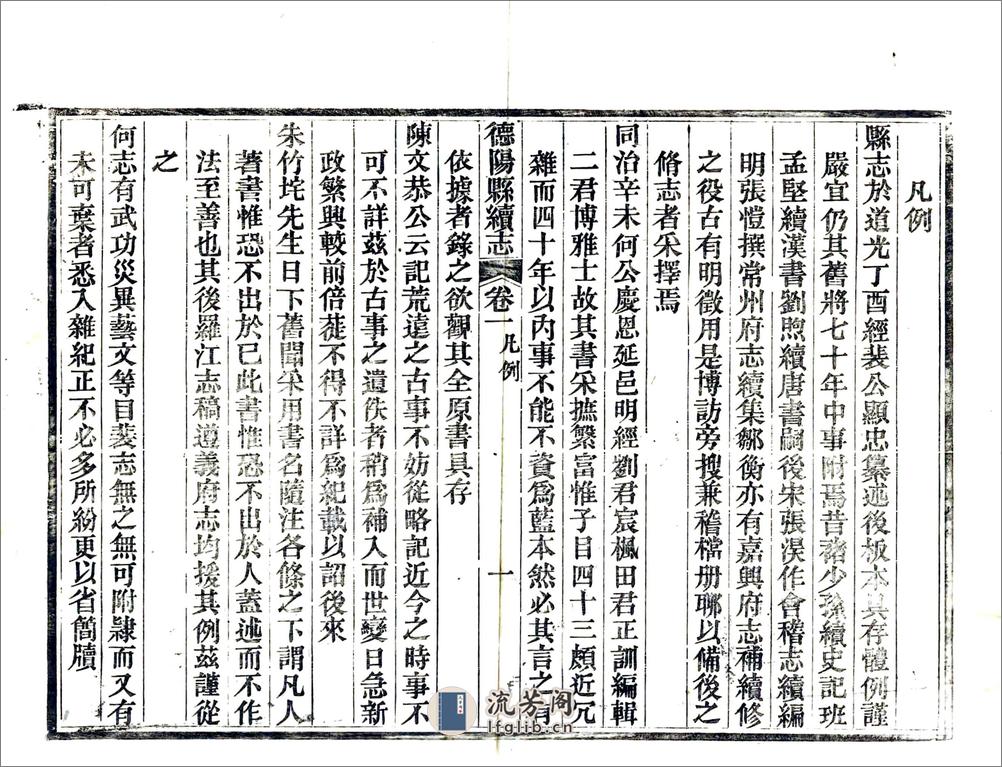 凡例
縣志於道光丁酉經裴公顯忠纂述後板本具存體例謹
嚴宜仍其舊將七十年中事附焉昔褚少孫續史記班
孟堅續漢書劉煦續唐書嗣後宋張淏作會稽志續編
明張愷撰常州府志續集鄒衡亦有嘉興府志補續修
之役古有明徵用是博訪旁搜兼稽檔册聊以備後之
脩志者采擇焉
同治辛未何公慶恩延邑明經劉君宸楓田君正訓編輯
二君博雅士故其書采摭繁富惟子目四十三頗近冗
雜而四十年以內事不能不資爲藍本然必其言之有
德陽縣續志 卷一 凡例 一
依據者錄之欲觀其全原書具存
陳文恭公云記荒遠之古事不妨從略記近今之時事不
可不詳茲於古事之遺佚者稍爲補入而世變日急新
政繁興較前倍蓰不得不詳爲紀載以詔後來
朱竹垞先生日下舊聞采用書名隨注各條之下謂凡人
著書惟恐不出於已此書惟恐不出於人蓋述而不作
法至善也其後羅江志稿遵義府志均援其例茲謹從
之
何志有武功災異藝文等目裴志無之無可附隸而又有
未可棄者悉入雜紀正不必多所紛更以省簡牘
流芳阁
lfglib.cn